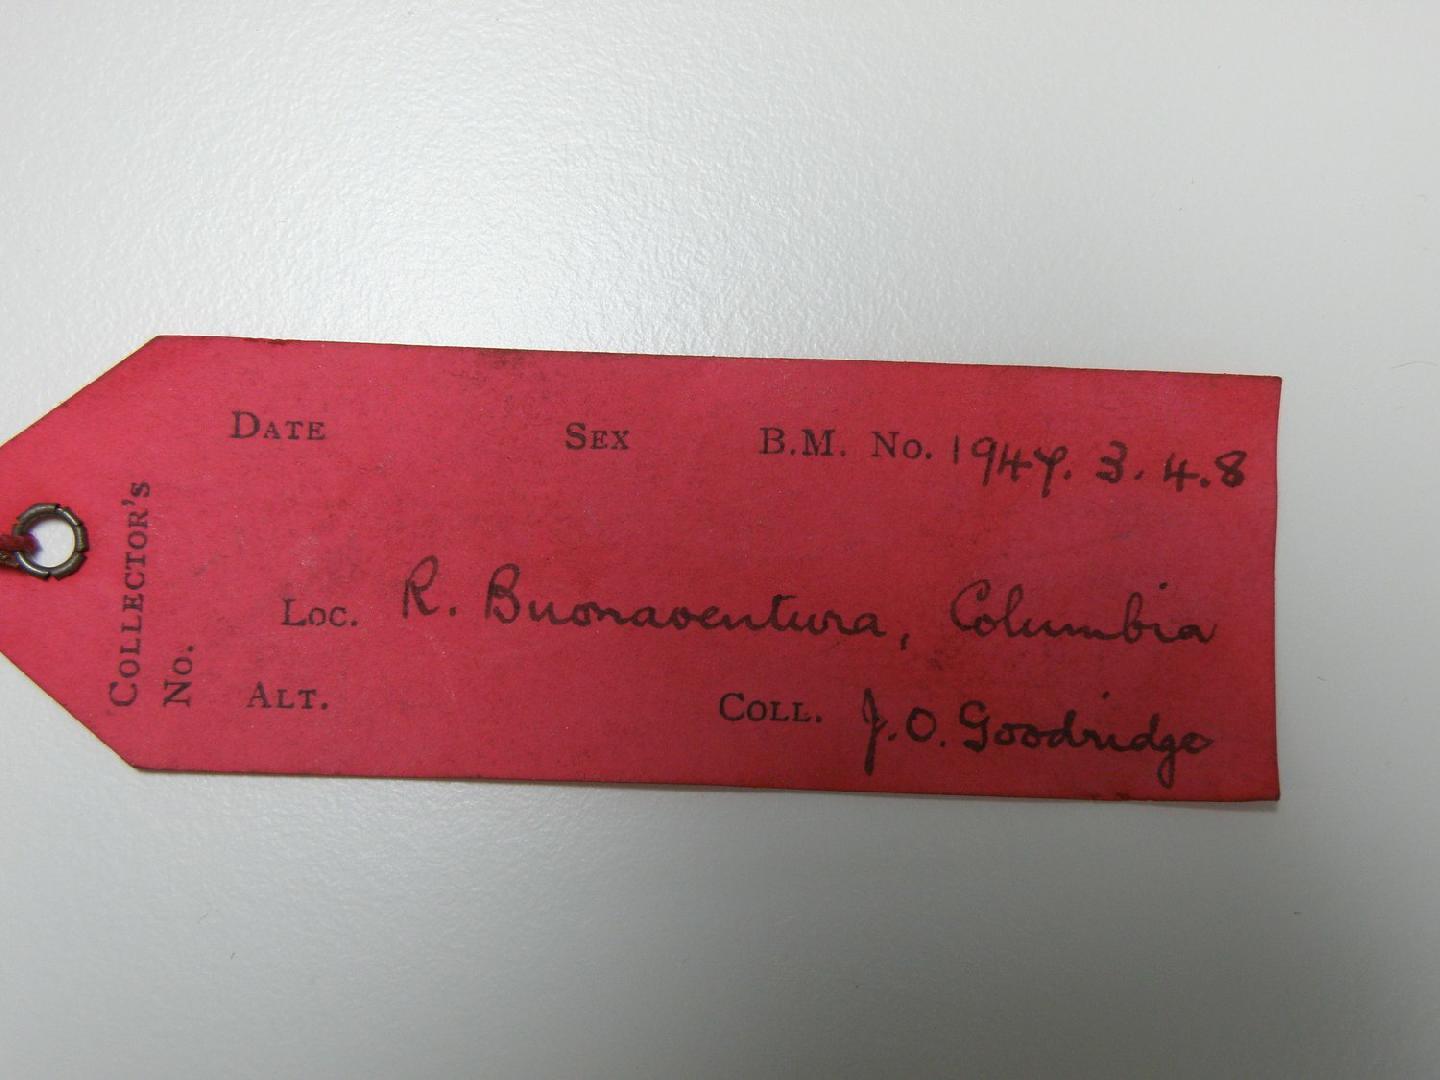 DATE SEX B.M. No. 1947. 3. 4.8
COLLECTOR'S
No.
Loc. R. Buonaventura, Columbia
ALT. COLL. J.O. Goodridge